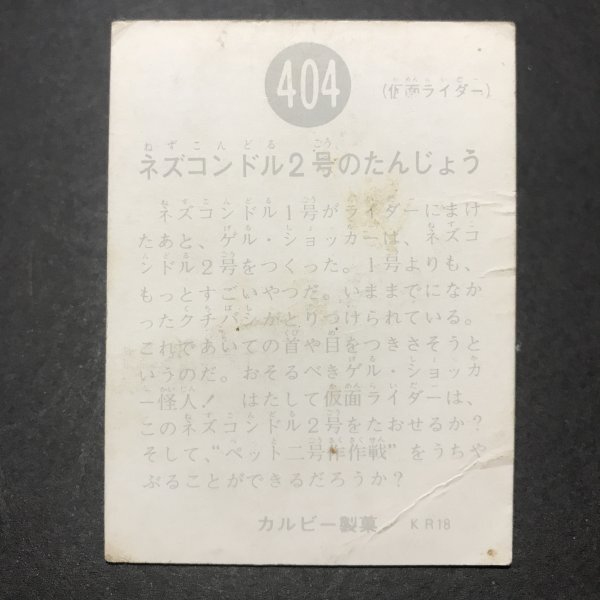 404
(仮面ライダー)
ネズコンドル2号のたんじょう
ネズコンドル1号がライダーにまけ
たあと、ゲル・ショッカーは、ネズコ
ンドル2号をつくった。1号よりも、
もっとすごいやつだ。いままでになか
ったクチバシがとりつけられている。
これであいての首や目をつきさそうと
いうのだ。おそるべきゲル・ショッカ
ー怪人! はたして仮面ライダーは、
このネズコンドル2号をたおせるか?
そして、“ペット二号作作戦”をうちや
ぶることができるだろうか?
カルビー製菓 KR18